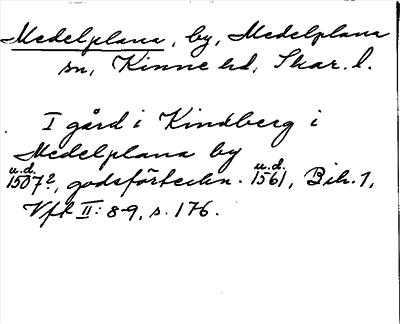 Medelplana, by, Medelplana
sn, Kinne hd, Skar. l.
I gård i Kindberg i
Medelplana by
u.d. 1507?, godsförteckn. u.d. 1561, Bih. 1,
Vft II: 8-9, s. 176.